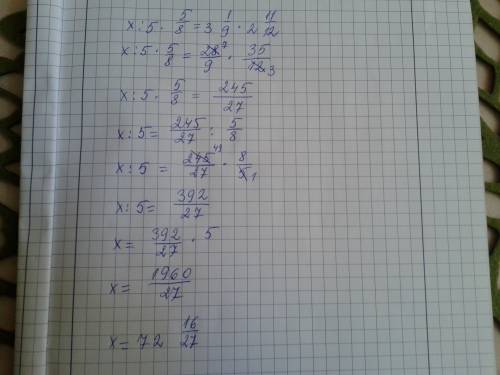 x:5 · 5/8 = 3 1/9 · 2 11/12
x:5 · 5/8 = 28 7/9 · 35/12 3
x:5 · 5/8 = 245/27
x:5 = 245/27 : 5/8
x:5 = 245 49/27 · 8/5 1
x:5 = 392/27
x = 392/27 · 5
x = 1960/27
x = 72 16/27